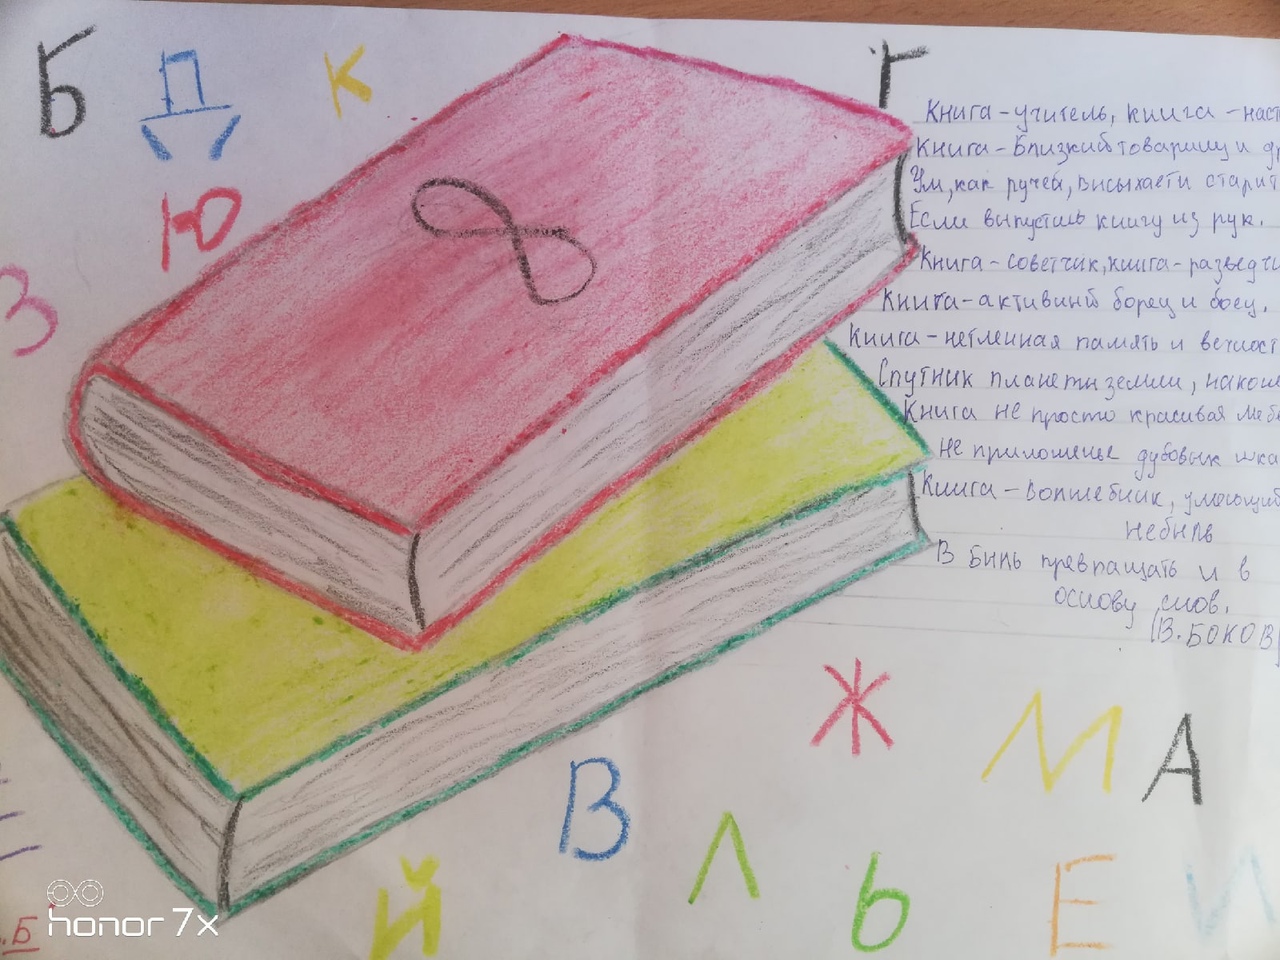 Б
Д
К
Г
Ю
З
Книга-учитель, книга-наст
Книга-Близкий товарищу и др
Ум, как ручей, висыхаети старит
Если выпустишь книгу из рук.
Книга-советчик, книга-разведчи
Книга-активинй борец и боец.
Книга-нетленная память и вечност
Спутник планеты земли, наконе
Книга не просто красивая меб
Не приложенье дубовых шка
Книга-волшебник, умеющий
небыль
В быль превращать и в
основу снов.
(В.БОКОВ)
Ж
М
А
В
Л
Й
Ь
Е
И
.Б
honor 7x